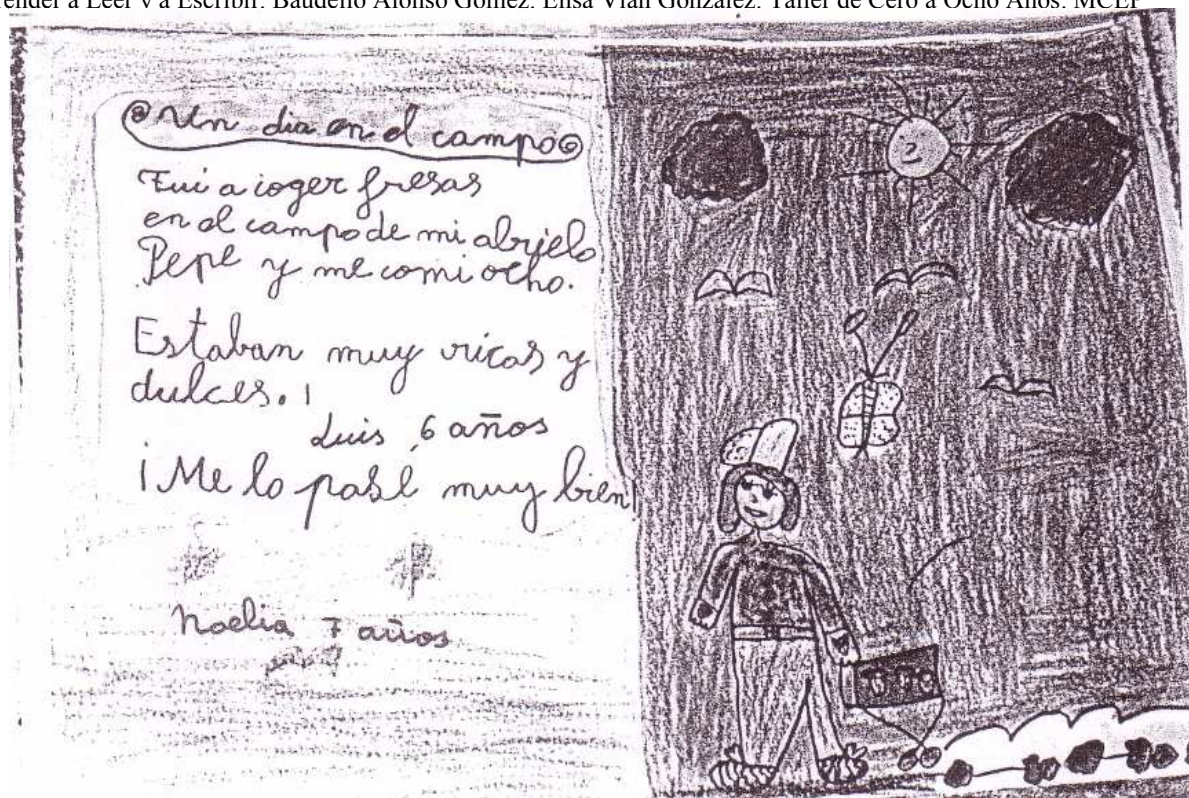 render a Leer y a Escribir. Baudelio Alonso Gómez. Elisa Vian González. Taller de Cero a Ocho Años. MCEP
Un dia en el campo
Fui a coger fresas
en el campo de mi abuelo
Pepe y me comi ocho.
Estaban muy ricas y
dulces. !
Luis 6 años
¡Me lo pasé muy bien!
Noelia 7 años